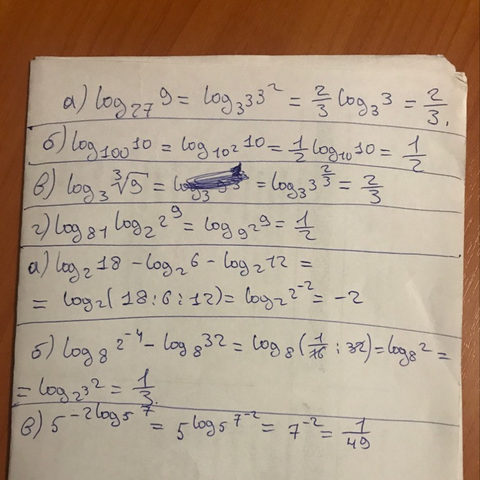 а) log₂₇ 9 = log₃³ 3² = 2/3 log₃ 3 = 2/3.
б) log₁₀₀ 10 = log₁₀² 10 = 1/2 log₁₀ 10 = 1/2
в) log₃ ∛9 = = log₃ 3^(2/3) = 2/3
г) log₈₁ log₂ 2⁹ = log₉² 9 = 1/2
а) log₂ 18 - log₂ 6 - log₂ 12 =
= log₂ (18 : 6 : 12) = log₂ 2⁻² = -2
б) log₈ 2⁻⁴ - log₈ 32 = log₈ (1/16 : 32) = log₈ 2 =
= log₂³ 2 = 1/3.
в) 5^(-2log₅ 7) = 5^(log₅ 7⁻²) = 7⁻² = 1/49